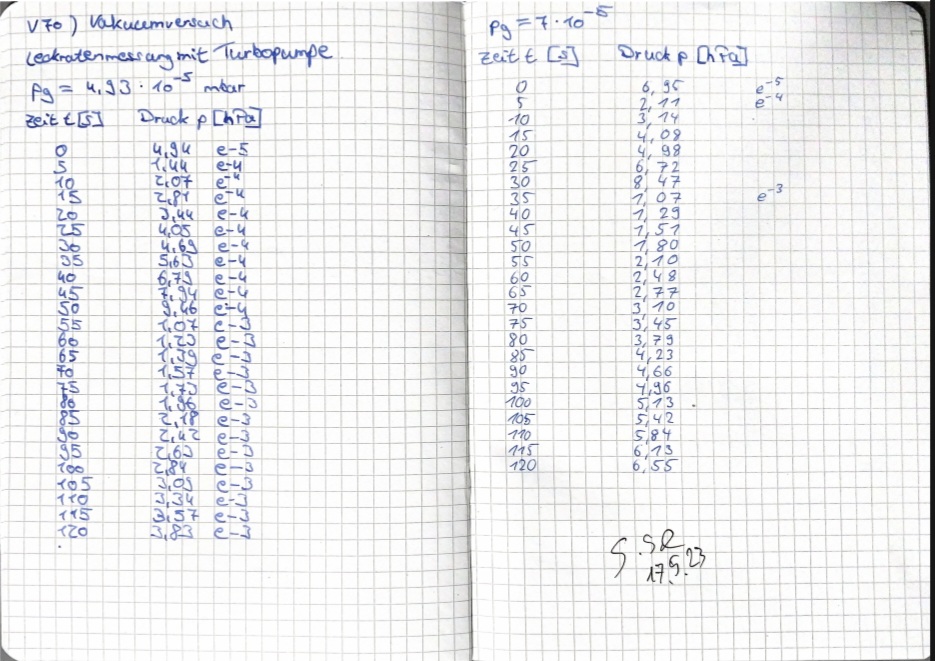 V70) Vakuumversuch
Leckratenmessung mit Turbopumpe
pg = 4,93 · 10^-5 mbar
Zeit t [s] Druck p [hPa]
0 4,94 e-5
5 1,44 e-4
10 2,07 e-4
15 2,81 e-4
20 3,44 e-4
25 4,05 e-4
30 4,69 e-4
35 5,63 e-4
40 6,79 e-4
45 7,94 e-4
50 9,46 e-4
55 1,07 e-3
60 1,23 e-3
65 1,39 e-3
70 1,57 e-3
75 1,73 e-3
80 1,96 e-3
85 2,18 e-3
90 2,42 e-3
95 2,63 e-3
100 2,84 e-3
105 3,09 e-3
110 3,34 e-3
115 3,57 e-3
120 3,83 e-3
pg = 7 · 10^-5
Zeit t [s] Druck p [hPa]
0 6,95 e^-5
5 2,11 e^-4
10 3,14
15 4,08
20 4,98
25 6,72
30 8,47
35 1,07 e^-3
40 1,29
45 1,51
50 1,80
55 2,10
60 2,48
65 2,77
70 3,10
75 3,45
80 3,79
85 4,23
90 4,66
95 4,96
100 5,13
105 5,42
110 5,84
115 6,13
120 6,55
17.5.23